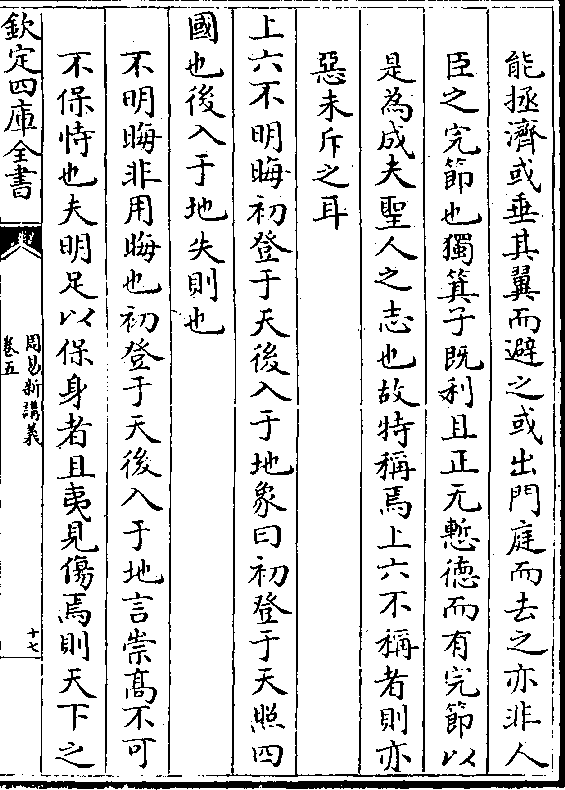 能拯濟或垂其翼而避之或出門庭而去之亦非人
臣之完節也獨箕子既利且正无慙德而有完節以
是為成夫聖人之志也故特稱焉上六不稱者則亦
惡未斥之耳
上六不明晦初登于天後入于地象曰初登于天照四
國也後入于地失則也
不明晦非用晦也初登于天後入于地言崇高不可
不保恃也夫明足以保身者且夷見傷焉則天下之
欽定四庫全書
周易新講義
卷五
十七